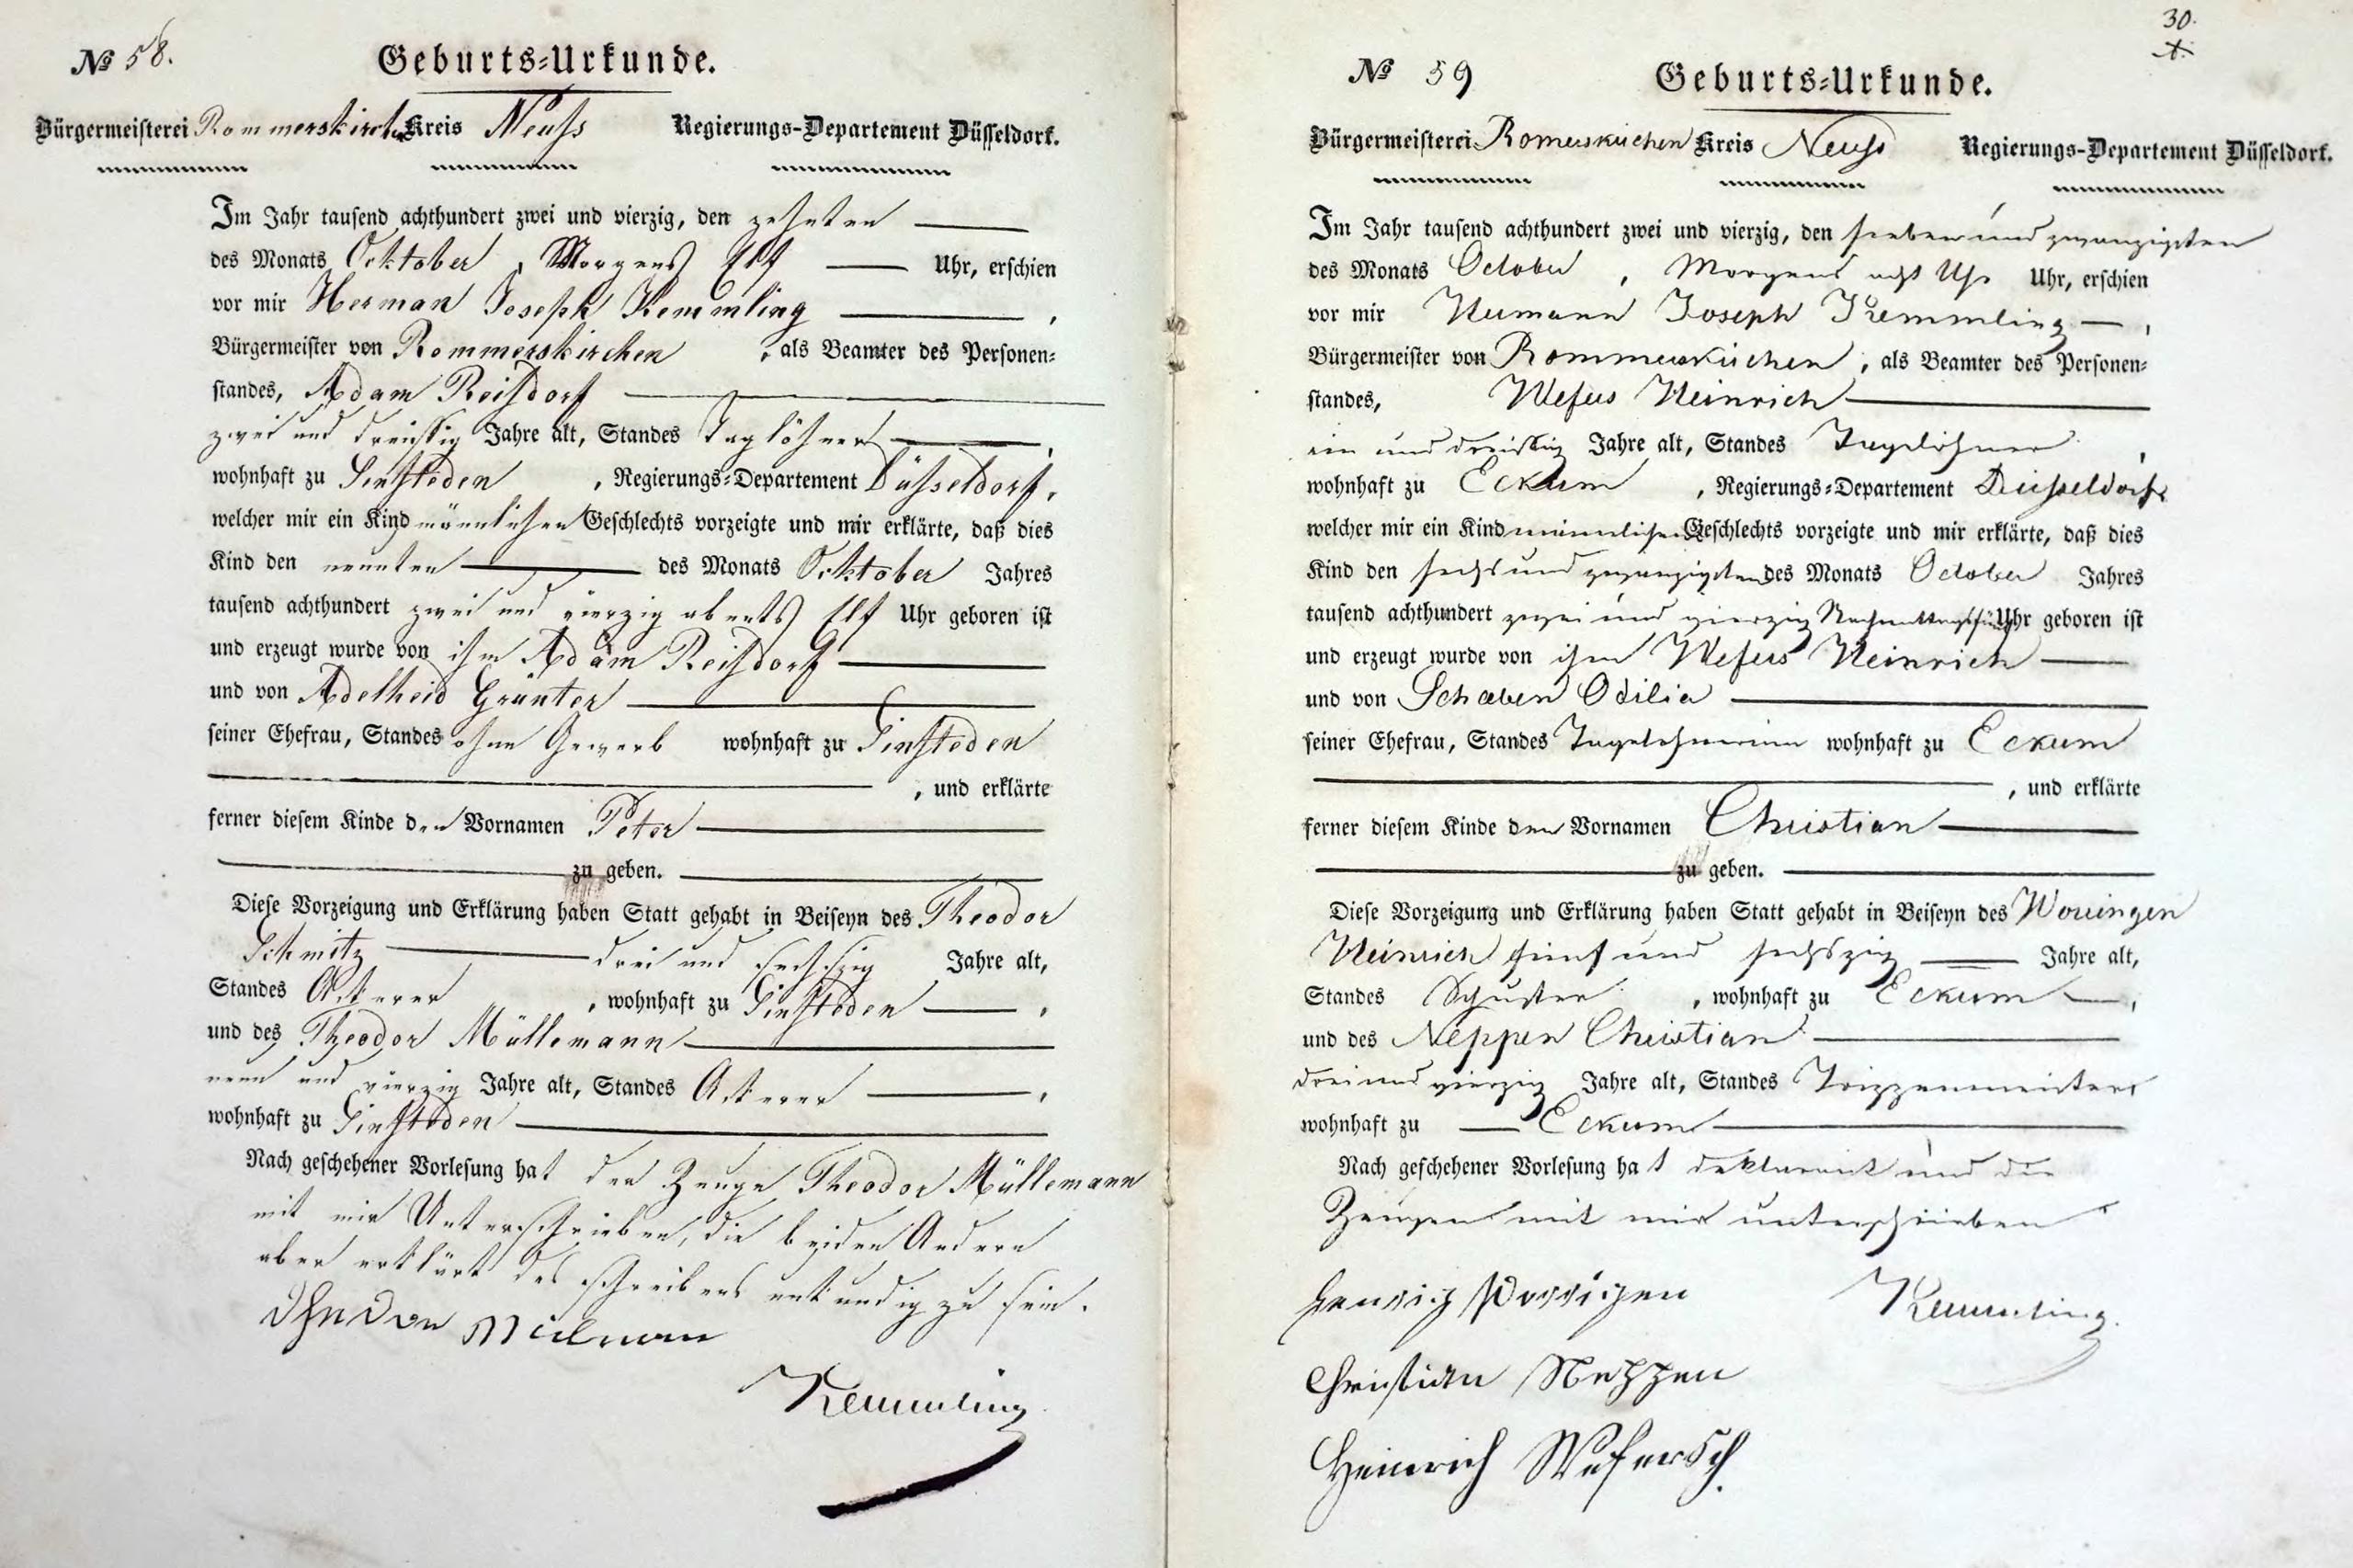 № 58.
Geburts-Urkunde.
Bürgermeisterei Rommerskirchen Kreis Neuss Regierungs-Departement Düsseldorf.
Im Jahr tausend achthundert zwei und vierzig, den zehnten
des Monats Ocktober, Morgens Elf Uhr, erschien
vor mir Herman Joseph Kemmling,
Bürgermeister von Rommerskirchen, als Beamter des Personen-
standes, Adam Reisdorf
zwei und dreissig Jahre alt, Standes Taglöhner,
wohnhaft zu Sinsteden, Regierungs-Departement Düsseldorf,
welcher mir ein Kind männlichen Geschlechts vorzeigte und mir erklärte, daß dies
Kind den neunten des Monats Ocktober Jahres
tausend achthundert zwei und vierzig abents Elf Uhr geboren ist
und erzeugt wurde von ihm Adam Reisdorf
und von Adelheid Grünter
seiner Ehefrau, Standes ohne Gewerb wohnhaft zu Sinsteden
, und erklärte
ferner diesem Kinde den Vornamen Peter
zu geben.
Diese Vorzeigung und Erklärung haben Statt gehabt in Beiseyn des Theodor
Schmitz drei und sechszig Jahre alt,
Standes Ackerer, wohnhaft zu Sinsteden,
und des Theodor Müllemann
neun und vierzig Jahre alt, Standes Ackerer,
wohnhaft zu Sinsteden
Nach geschehener Vorlesung hat der Zeuge Theodor Müllemann
mit mir Unterschrieben, die beiden Andern
aber erklärt des schreibens unkundig zu sein.
Kemmling
30.
№ 59
Geburts-Urkunde.
Bürgermeisterei Romerskirchen Kreis Neuss Regierungs-Departement Düsseldorf.
Im Jahr tausend achthundert zwei und vierzig, den sieben und zwanzigsten
des Monats October, Morgens acht Uhr Uhr, erschien
vor mir Hermann Joseph Kemmling,
Bürgermeister von Rommerskirchen, als Beamter des Personen-
standes, Wefers Heinrich
ein und dreissig Jahre alt, Standes Tagelöhner,
wohnhaft zu Eckum, Regierungs-Departement Düsseldorf
welcher mir ein Kind männlichen Geschlechts vorzeigte und mir erklärte, daß dies
Kind den sechs und zwanzigsten des Monats October Jahres
tausend achthundert zwei und vierzig Nachmittags fünf Uhr geboren ist
und erzeugt wurde von ihm Wefers Heinrich
und von Schaben Odilia
seiner Ehefrau, Standes Tagelöhnerinn wohnhaft zu Eckum
, und erklärte
ferner diesem Kinde den Vornamen Christian
zu geben.
Diese Vorzeigung und Erklärung haben Statt gehabt in Beiseyn des Worringen
Heinrich fünf und sechszig Jahre alt,
Standes Schuster, wohnhaft zu Eckum,
und des Neppen Christian
drei und vierzig Jahre alt, Standes
wohnhaft zu Eckum
Nach geschehener Vorlesung hat deklarant und die
Zeugen mit mir unterschrieben
Kemmling
Christian Neppen
Heinrich Wefersch.